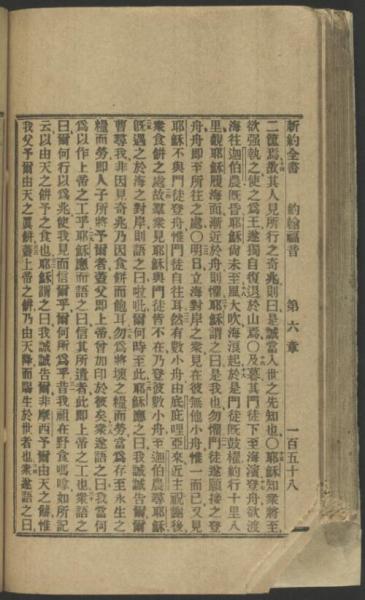 新約全書　約翰福音　第六章　一百五十八
二筐焉其人見所行之奇兆則曰是誠當入世之先知也〇耶穌知衆將至
欲强執之使之爲王遂獨自復退於山焉〇及暮其門徒下至海濱登舟欲渡
海往迦伯農旣昏耶穌尙未至風大吹海浪起於是門徒旣鼓櫂約行十里八
里觀耶穌履海面漸近於舟則懼耶穌謂之曰是我也勿懼門徒遂願接之登
舟舟卽至所往之處〇明日立海對岸之衆見在彼無他小舟惟一而已又見
耶穌不與門徒登舟惟門徒自往耳然有數小舟由底庇哩亞來近主祝謝後
衆食餅之處故羣衆見耶穌與門徒皆不在乃登彼數小舟至迦伯農尋耶穌
旣遇之於海之對岸則語之曰吡爾何時至此耶穌應之曰我誠誠告爾爾
曹尋我非因見奇兆乃因食餅而飽耳勿爲將壞之糧而勞當爲存至永生之
糧而勞卽人子所將予爾者蓋父卽上帝曾加印於彼矣衆遂語之曰我當何
爲以作上帝之工乎耶穌應而語之曰信其所遣者此卽上帝之工也衆語之
曰爾何行以爲兆使我見而信爾乎爾何所爲乎昔我祖在野食嗎如所記
云以由天之餅予之食也耶穌謂之曰我誠誠告爾非摩西予爾由天之餅惟
我父予爾由天之眞餅蓋上帝之餅乃由天降而賜生於世者也衆遂語之曰